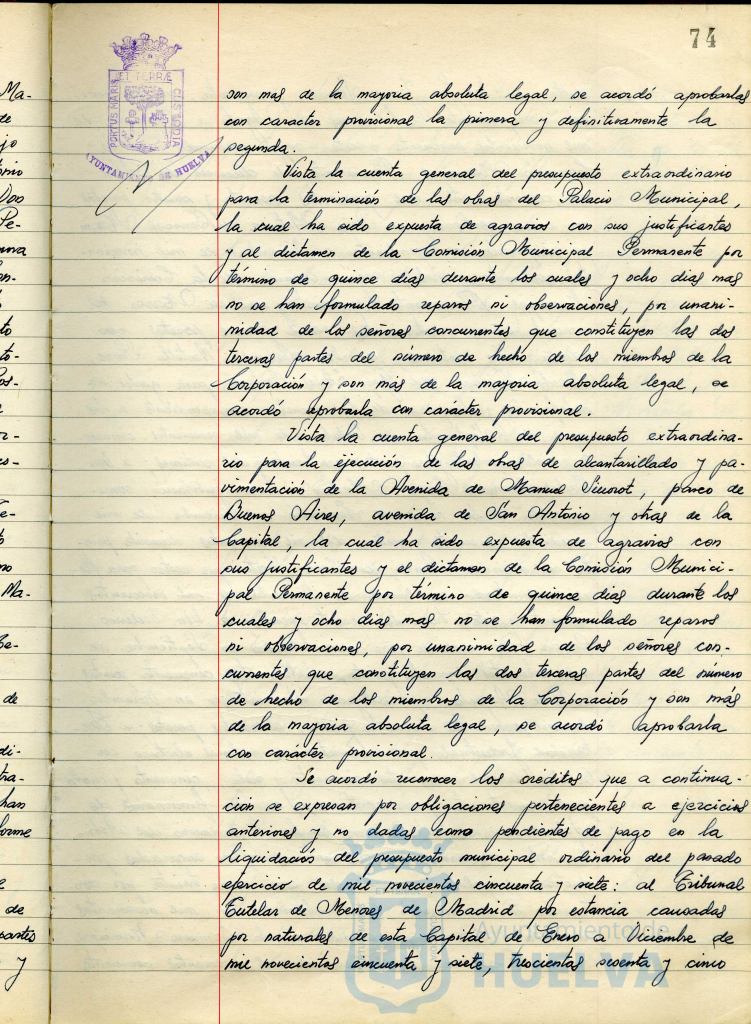 74
PORTUS MARIS ET TERRÆ CUSTODIA
AYUNTAMIENTO DE HUELVA
son mas de la mayoria absoluta legal, se acordó aprobarlas
con caracter provisional la primera y definitivamente la
segunda.
Vista la cuenta general del presupuesto extraordinario
para la terminación de las obras del Palacio Municipal,
la cual ha sido expuesta de agravios con sus justificantes
y al dictamen de la Comisión Municipal Permanente por
término de quince días durante los cuales y ocho dias mas
no se han formulado reparos ni observaciones, por unani-
midad de los señores concurrentes que constituyen las dos
terceras partes del número de hecho de los miembros de la
Corporación y son más de la mayoria absoluta legal, se
acordó aprobarla con carácter provisional.
Vista la cuenta general del presupuesto extraordina-
rio para la ejecución de las obras de alcantarillado y pa-
vimentación de la Avenida de Manuel Siurot, paseo de
Buenos Aires, avenida de San Antonio y otras de la
Capital, la cual ha sido expuesta de agravios con
sus justificantes y el dictamen de la Comisión Munici-
pal Permanente por término de quince dias durante los
cuales y ocho dias mas no se han formulado reparos
ni observaciones, por unanimidad de los señores con-
currentes que constituyen las dos terceras partes del número
de hecho de los miembros de la Corporación y son más
de la mayoria absoluta legal, se acordó aprobarla
con carácter provisional.
Se acordó reconocer los créditos que a continua-
ción se expresan por obligaciones pertenecientes a ejercicios
anteriores y no dadas como pendientes de pago en la
liquidación del presupuesto municipal ordinario del pasado
ejercicio de mil novecientos cincuenta y siete: al Tribunal
Tutelar de Menores de Madrid por estancia causadas
por naturales de esta Capital de Enero a Diciembre de
mil novecientos cincuenta y siete, trescientas sesenta y cinco
Ayuntamiento de
HUELVA